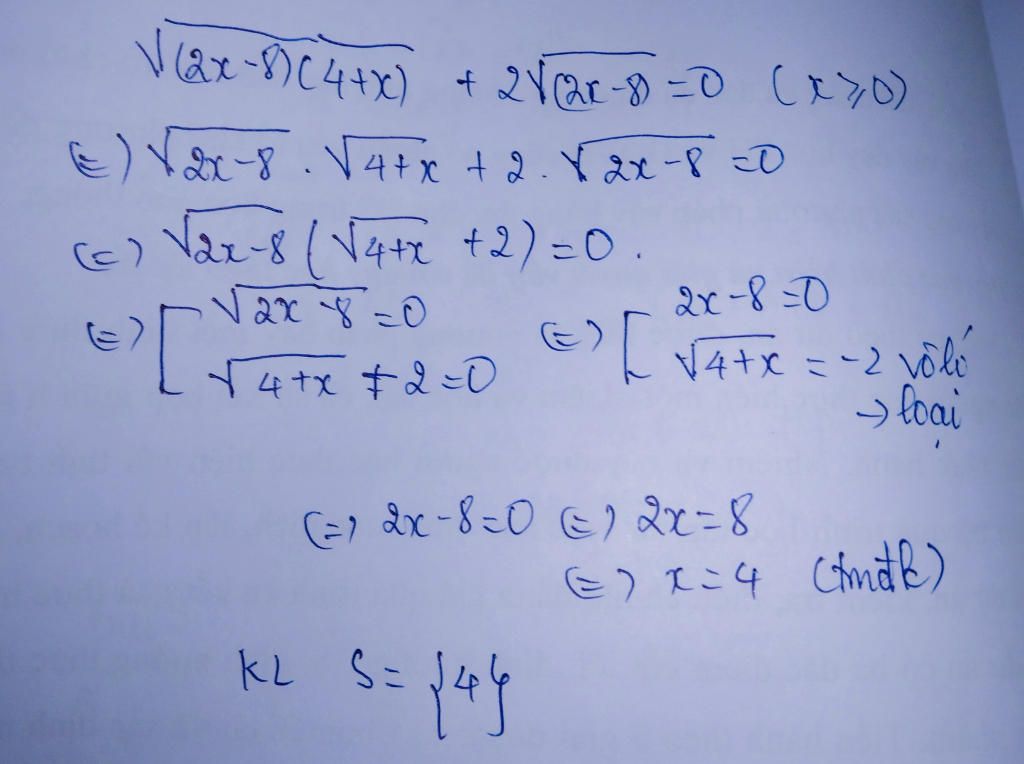 √(2x-8)(4+x) + 2√(2x-8) = 0 (x ≥ 0)
(=) √2x-8 . √4+x + 2. √2x-8 = 0
(=) √2x-8 ( √4+x + 2) = 0.
(=) [ √2x-8 = 0 (=) [ 2x-8 = 0
√4+x + 2 = 0 √4+x = -2 vô lí
→ loại
(=) 2x-8 = 0 (=) 2x = 8
(=) x = 4 (tmđk)
KL S = {4}